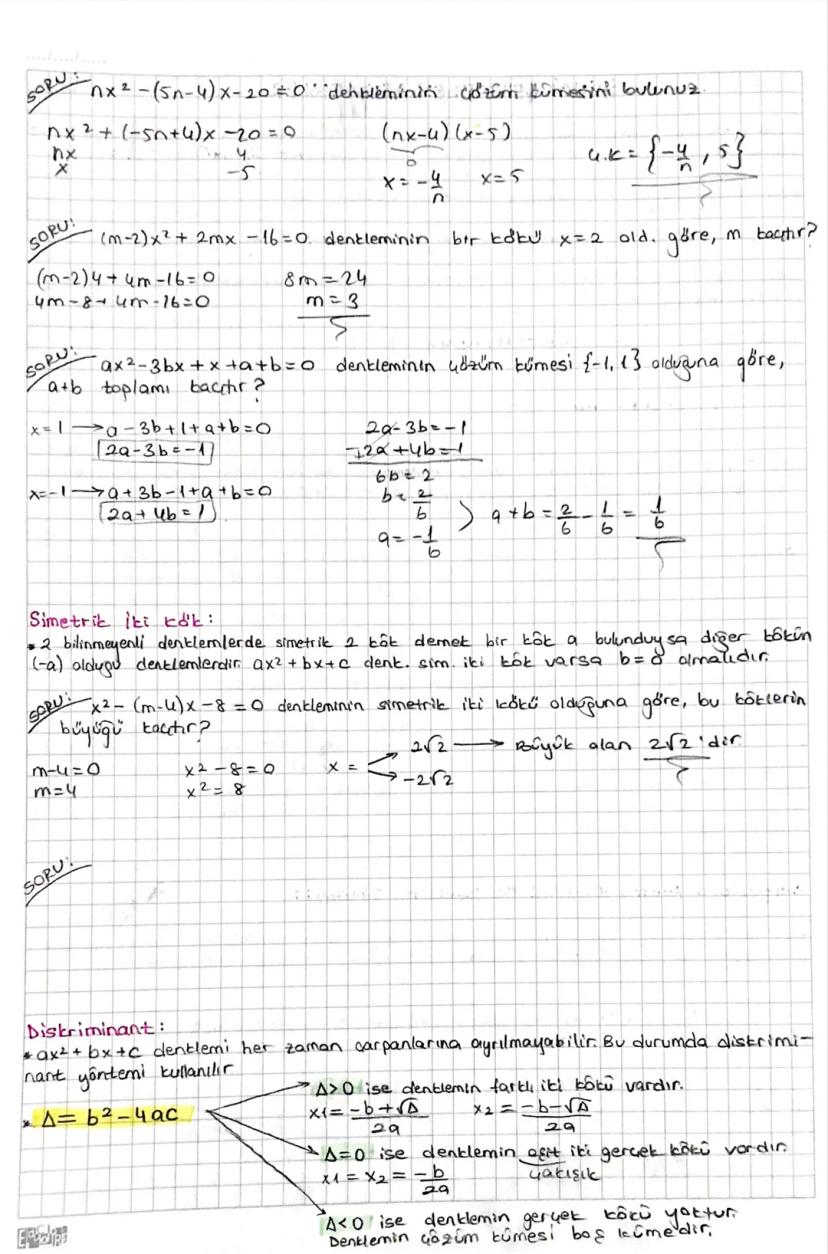 SORU: nx² - (5n-4)x - 20 = 0 denkleminin çözüm kümesini bulunuz.
nx² + (-5n+4)x - 20 = 0 (nx-4)(x-5)
nx 4 0 Ç.K = {-4/n, 5}
x -5 x = -4/n x = 5
SORU: (m-2)x² + 2mx - 16 = 0 denkleminin bir kökü x=2 old. göre, m kaçtır?
(m-2)4 + 4m - 16 = 0 8m = 24
4m - 8 + 4m - 16 = 0 m = 3
SORU: ax² - 3bx + x + a + b = 0 denkleminin çözüm kümesi {-1, 1} olduğuna göre,
a+b toplamı kaçtır?
x = 1 → a - 3b + 1 + a + b = 0 2a - 3b = -1
2a - 3b = -1 2a + 4b = 1
6b = 2
x = -1 → a + 3b - 1 + a + b = 0 b = 2/6
2a + 4b = 1 a + b = 2/6 - 1/6 = 1/6
a = -1/6
Simetrik İki Kök:
• 2 bilinmeyenli denklemlerde simetrik 2 kök demek bir kök a bulunduysa diğer kökün
(-a) olduğu denklemlerdir. ax² + bx + c denk. sim. iki kök varsa b = 0 olmalıdır.
SORU: x² - (m-4)x - 8 = 0 denkleminin simetrik iki kökü olduğuna göre, bu köklerin
büyüğü kaçtır?
2√2 → Büyük olan 2√2'dir.
m-4=0 x² - 8 = 0 x =
m=4 x² = 8 -2√2
SORU:
Diskriminant:
• ax² + bx + c denklemi her zaman çarpanlarına ayrılmayabilir. Bu durumda diskrimi-
nant yöntemi kullanılır
Δ>0 ise denklemin farklı iki kökü vardır.
• Δ = b² - 4ac x1 = (-b+√Δ)/2a x2 = (-b-√Δ)/2a
Δ=0 ise denklemin eşit iki gerçek kökü vardır.
x1 = x2 = -b/2a çakışık
Δ<0 ise denklemin gerçek kökü yoktur.
Denklemin çözüm kümesi boş kümedir.